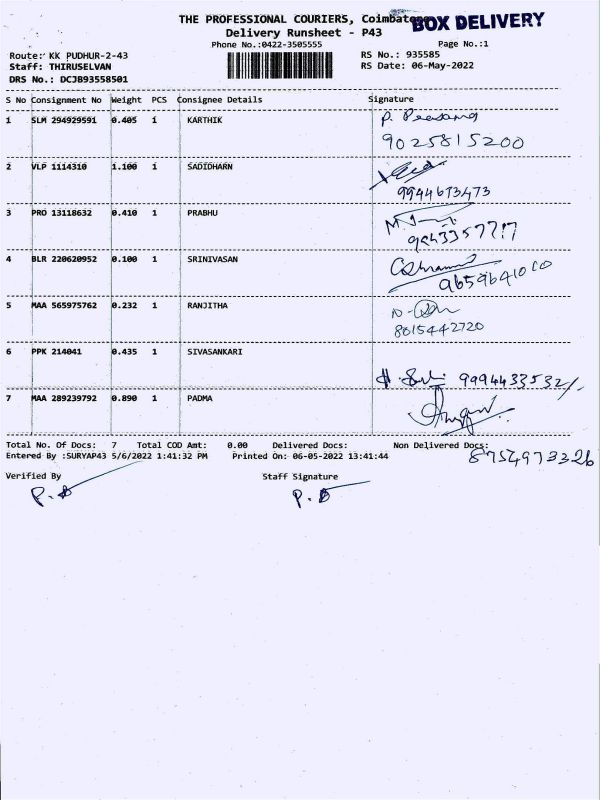 THE PROFESSIONAL COURIERS, Coimbatore
BOX DELIVERY
Delivery Runsheet - P43
Phone No.:0422-3505555 Page No.:1
Route: KK PUDHUR-2-43 RS No.: 935585
Staff: THIRUSELVAN RS Date: 06-May-2022
DRS No.: DCJB93558501
S No Consignment No Weight PCS Consignee Details Signature
1 SLM 294929591 0.405 1 KARTHIK
9025815200
2 VLP 1114310 1.100 1 SADIDHARN
9944673473
3 PRO 13118632 0.410 1 PRABHU
4 BLR 220620952 0.100 1 SRINIVASAN
9659641010
5 MAA 565975762 0.232 1 RANJITHA
8015442720
6 PPK 214041 0.435 1 SIVASANKARI
9994433532/-
7 MAA 289239792 0.890 1 PADMA
Total No. Of Docs: 7 Total COD Amt: 0.00 Delivered Docs: Non Delivered Docs:
8754973326
Entered By :SURYAP43 5/6/2022 1:41:32 PM Printed On: 06-05-2022 13:41:44
Verified By Staff Signature